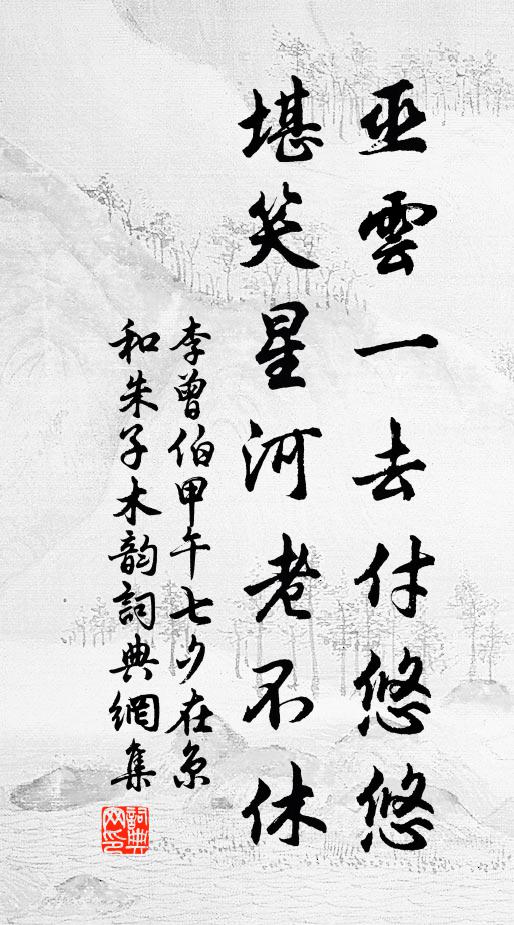 巫雲一去付悠悠
堪笑星河老不休
李曾伯甲午七夕在京
和朱子木韵詞典網集
詞典
网印